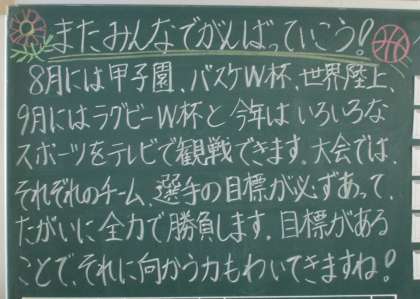 またみんなでがんばっていこう!
8月には甲子園、バスケW杯、世界陸上、
9月にはラグビーW杯と今年はいろいろな
スポーツをテレビで観戦できます。大会では、
それぞれのチーム、選手の目標が必ずあって、
たがいに全力で勝負します。目標がある
ことで、それに向かう力もわいてきますね!